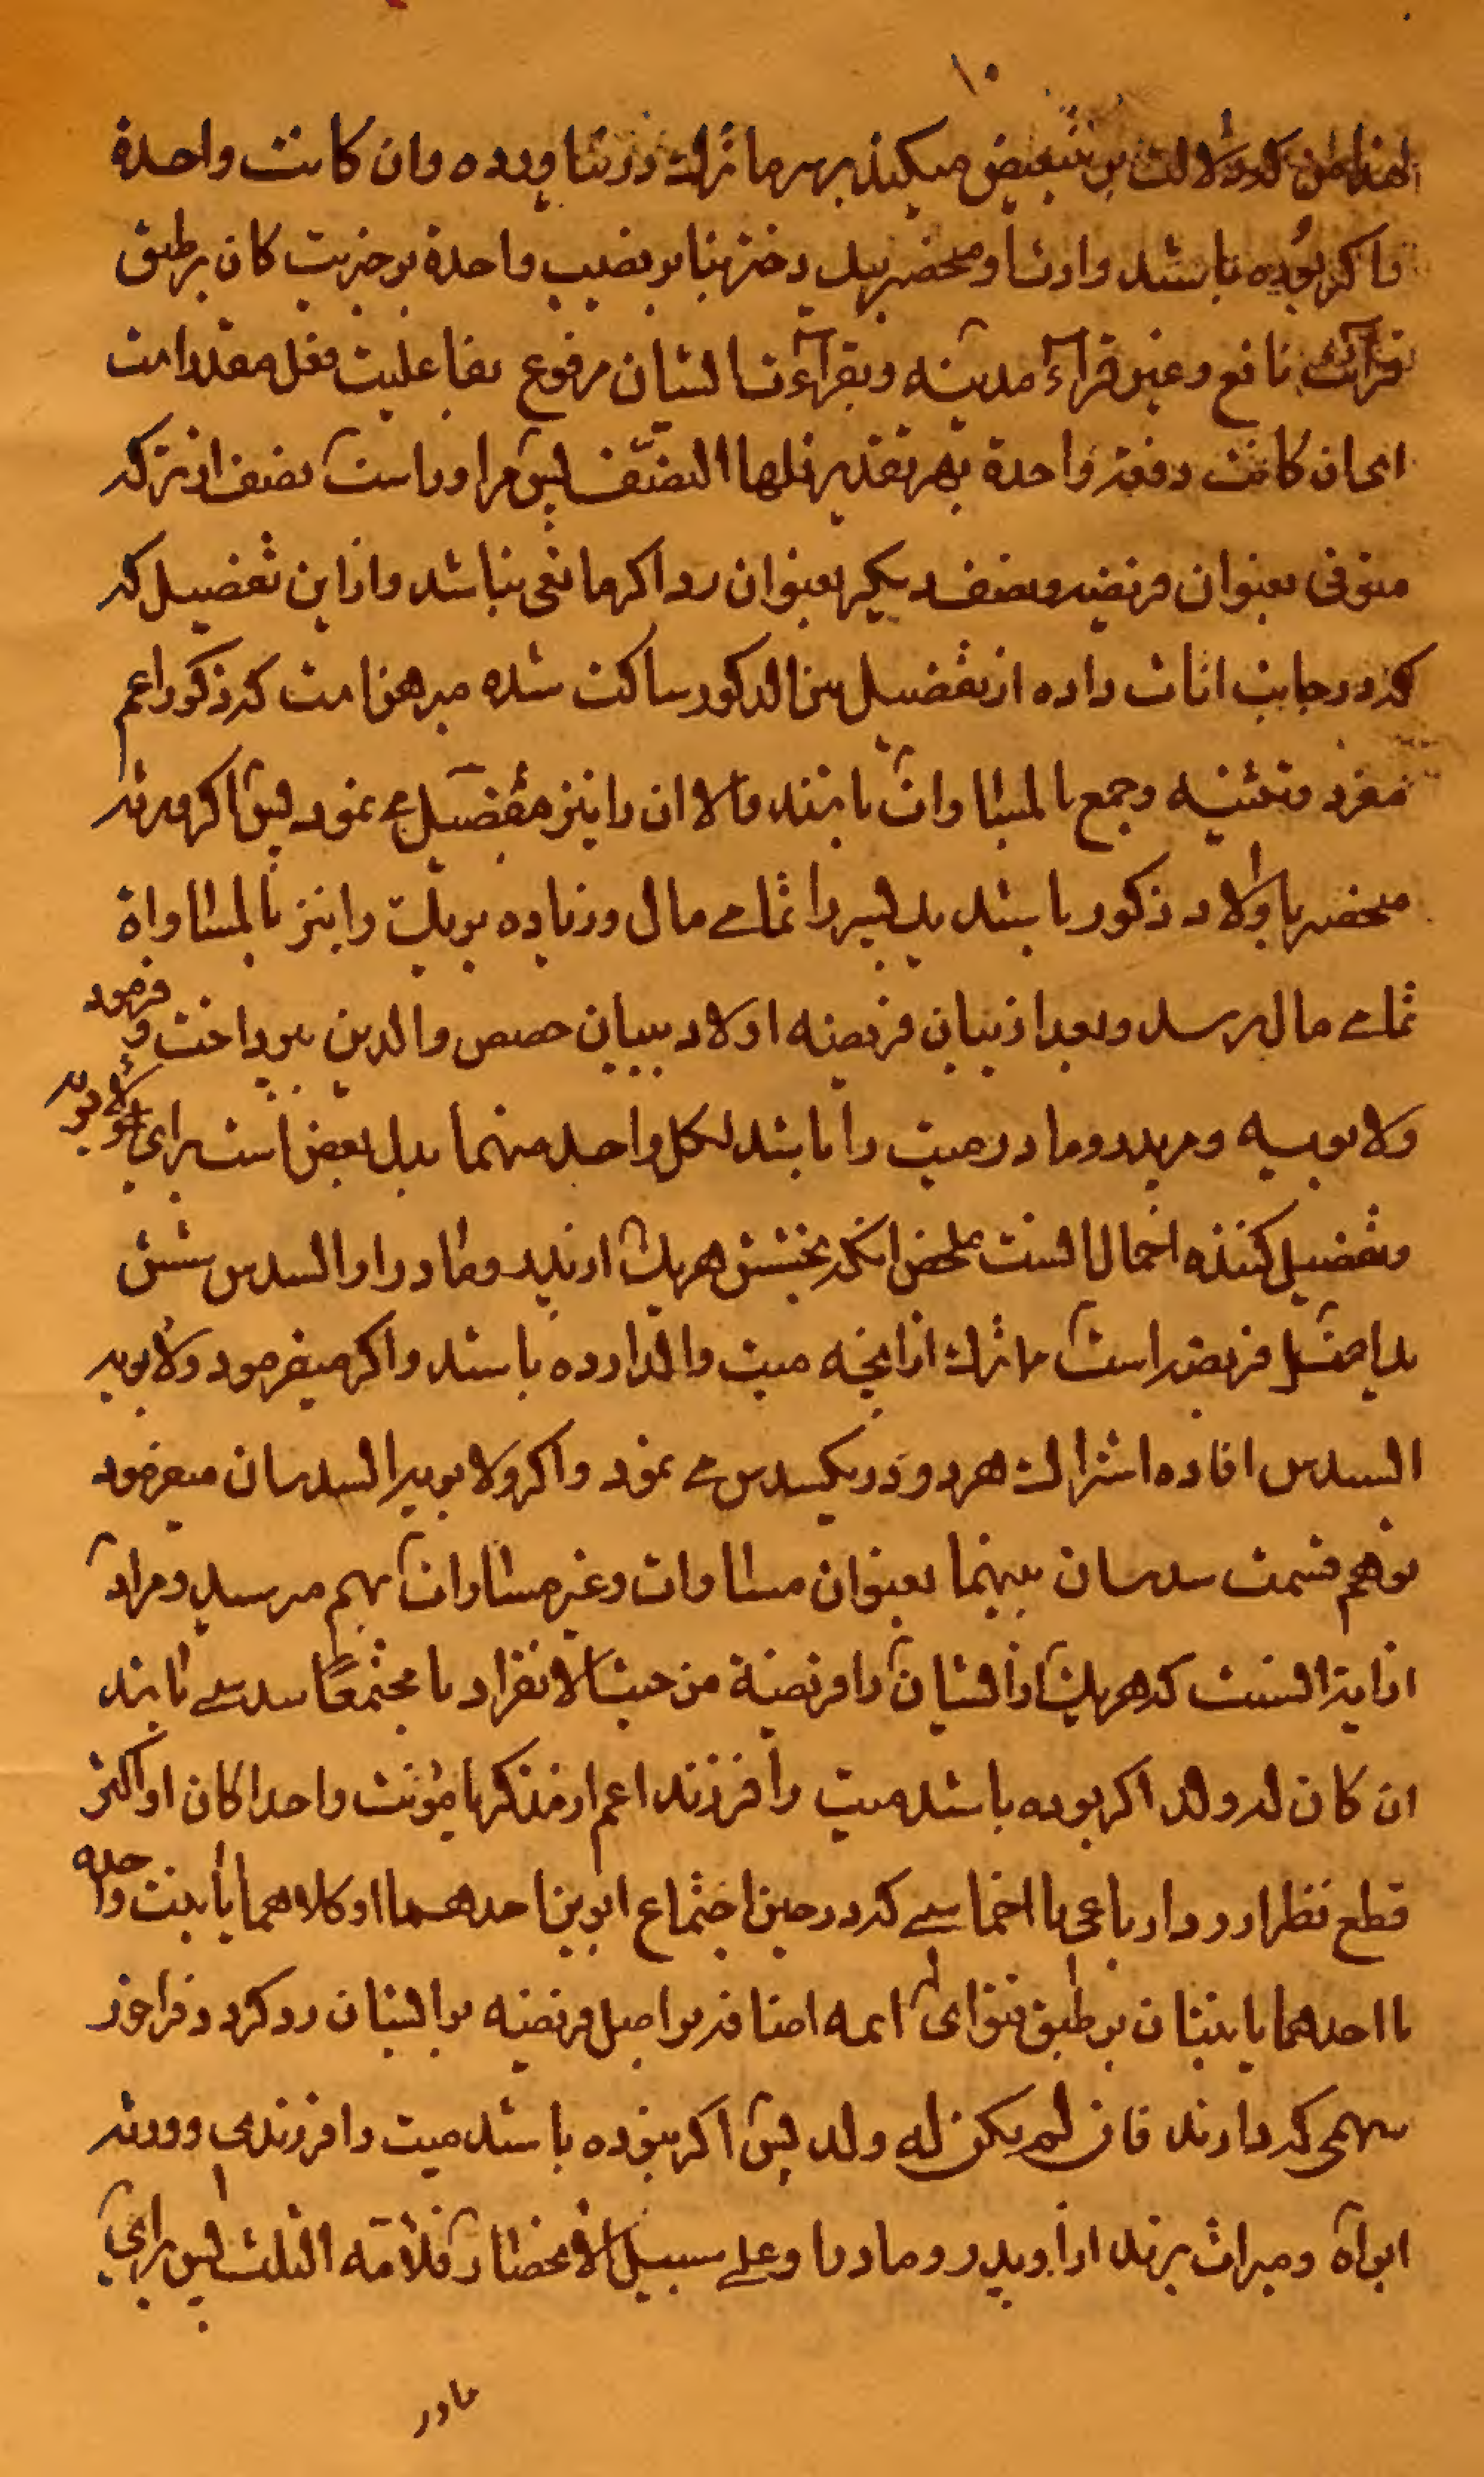 ۱۰
لهذا من که دلالت بر تبعیض میکند بر سر ما ترك در نیاورده وان كانت واحدة
واکر بوده باشد وارث او منحصر بیك دختر بنا بر نصب واحدة بر خبریت کان بر طبق
قرائت نافع وغیر قرآء مدینه وبقرآءت ایشان مرفوع بفاعلیت فعل مقدر است
ای ان کانت وقعت واحدة بهر تقدیر فلها النصف پس مر او راست نصف از ترکه
متوفی بعنوان فریضه ونصف دیکر بعنوان رد اکر مانعی نباشد واز این تفضیل که
که در جانب اناث داده از تفضیل بین الذکور ساکت شده مبرهن است که ذکور اعم
مفرد وتثنیه وجمع بالمساوات یابند والا ان را نیز مفصل می نمود پس اکر ورثه
منحصر باولاد ذکور باشد یك پسر را تمامے مال وزیاده بر یك را نیز بالمساواة
تمامے مال برسد وبعد از بیان فریضه اولاد ببیان حصص والدین پرداخت و فرمود
ولابویه ومر پدر ومادر میت را باشد لکل واحد منهما بدل بعض است برای لابویه
وتفصیل کننده اجمال السنت ملخص انکه بخشش هر یك از پدر ومادر او السدس شش
یك اصل فریضه است مما ترك از انچه میت واکذارده باشد واکر میفرمود ولابویه
السدس افاده اشتراك هر دو در یکسدس مے نمود واکر ولابویه السدسان میفرمود
توهم قسمت سدسان بینهما بعنوان مساوات وغیر مساوات بهم میرسید ومراد
از ایه انست که هر یك از ایشان را فریضة من حیث الانفراد یا مجتمعًا سدسے یابند
ان كان له ولد اکر بوده باشد میت را فرزند اعم از مذکر یا مؤنث واحدا کان او اکثر
قطع نظر از رد ارباعی یا اخماسے که در حین اجتماع ابوین احدهما او کلاهما با بنت واحده
یا احدهما با بنتان بر طبق فتوای ائمه اضافه بر اصل فریضه بر ایشان رد کرد و فراخور
سهمی که دارند فان لم یکن له ولد پس اکر نبوده باشد میت را فرزندی وورثه
ابواه ومیراث برند از او پدر ومادر او علے سبیل الانحصار فلامه الثلث پس برای
مادر